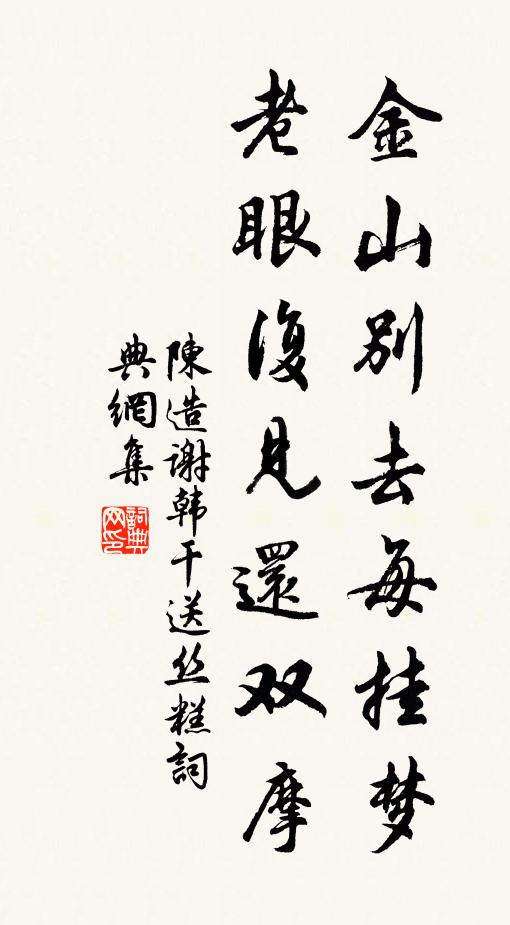 金山別去每挂梦
老眼復見還双摩
陳造謝韩干送丝糕詞
典網集
詞典網印